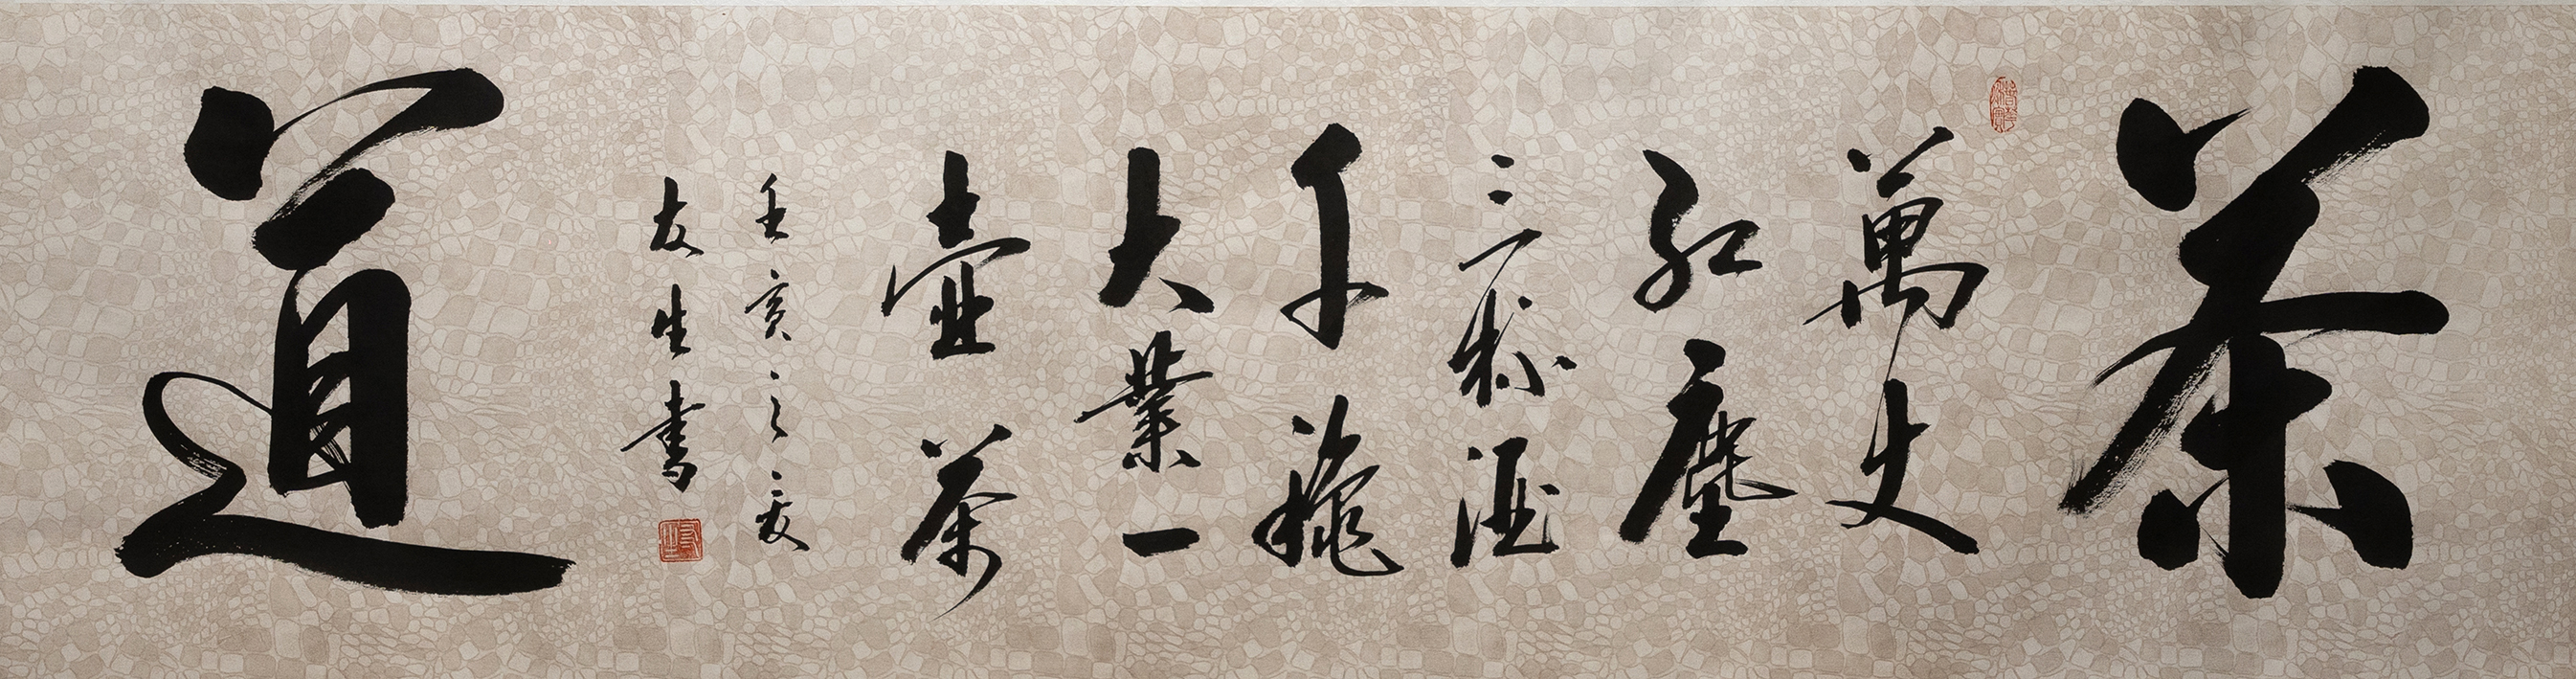 茶
萬丈
紅塵
三杯酒
千龝
大業一
壺茶
壬亥之夏
友生書
道